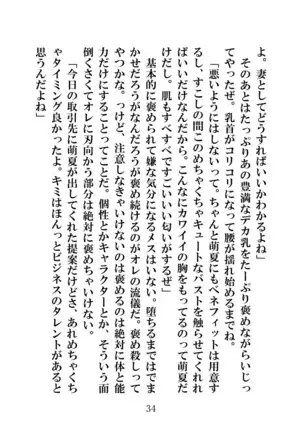 よ。妻としてどうすればいいかわかるよね」
　そのあとはたっぷりあの豊満なデカ乳をたーぷり褒めながらいじっ
てやったぜ。乳首がコリコリになって腰が揺れ始めるまでね。
「悪いようにはしないって。ちゃんと萌夏にもベネフィットは用意す
るし、すこしの間このめちゃくちゃキュートなバストを触らせてくれれ
ばいいだけなんだから。こんなにカワイイの胸をもってるのって萌夏だ
けだし。肌もすべすべですごいいい匂いがするぜ」
　基本的に褒められて嫌な気分になるメスはいない。堕ちるまではでま
かせだろうがなんだろうが褒め続けるのがオレの流儀だ。褒め殺しって
やつかな。っけど、注意しなきゃいけないのは褒めるのは絶対に体と能
力だけにするってことだ。個性とかキャラクターとか、そういう面
倒くさくてオレに刃向かう部分は絶対に褒めちゃいけない。
「今日の取引先に萌夏が出してくれた提案だけどさ、あれめちゃくち
ゃタイミング良かったよ。キミはほんっとビジネスのタレントがあると
思うんだよね」
34